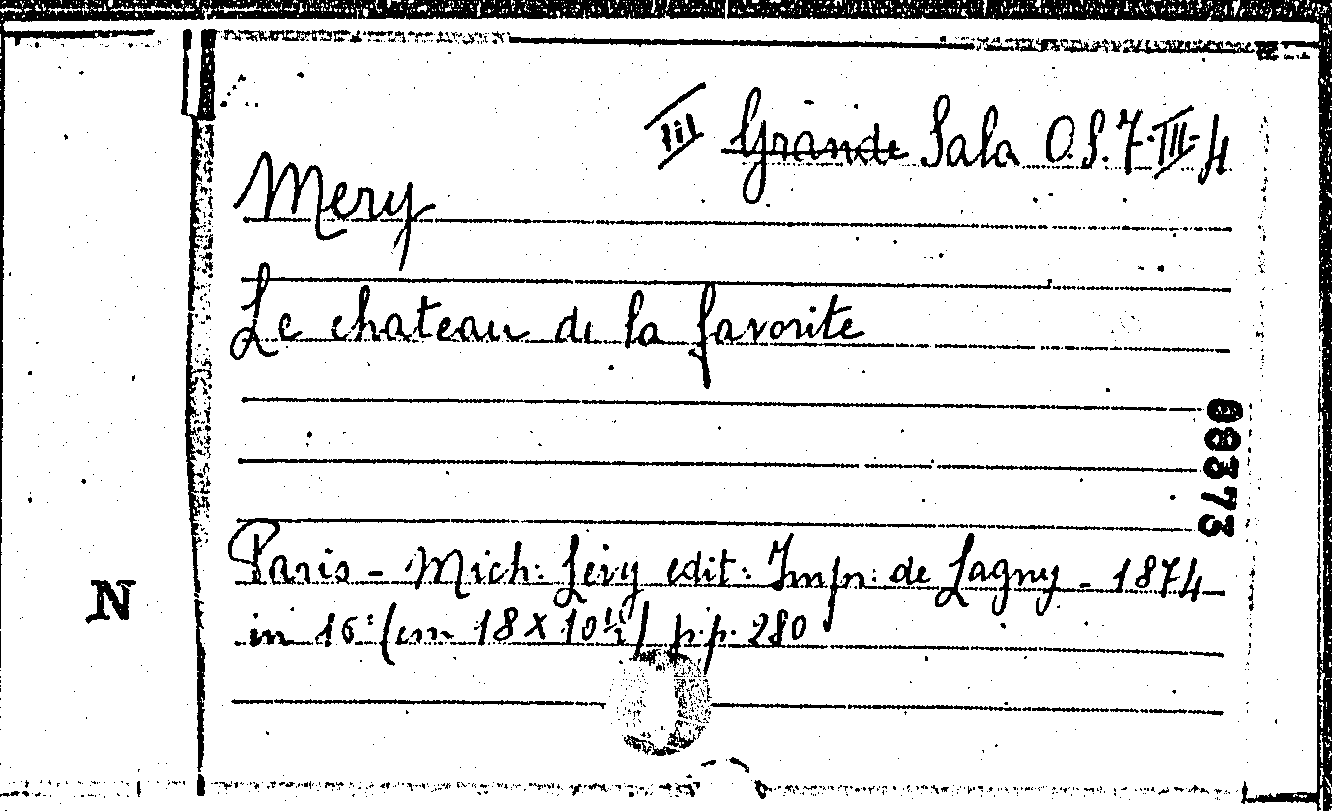 III Grande Sala O.S. 7. III. 4
Mery
Le chateau de la favorite
68373
Paris - Mich: Lévy edit: Impr: de Lagny - 1874
N
in 16: (cm 18 x 10 ½) p.p. 280